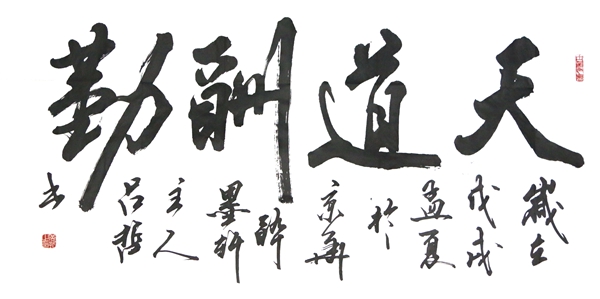 天道酬勤
歲在
戊戌
孟夏
於
京華
醉
墨軒
主人
吕哲
书